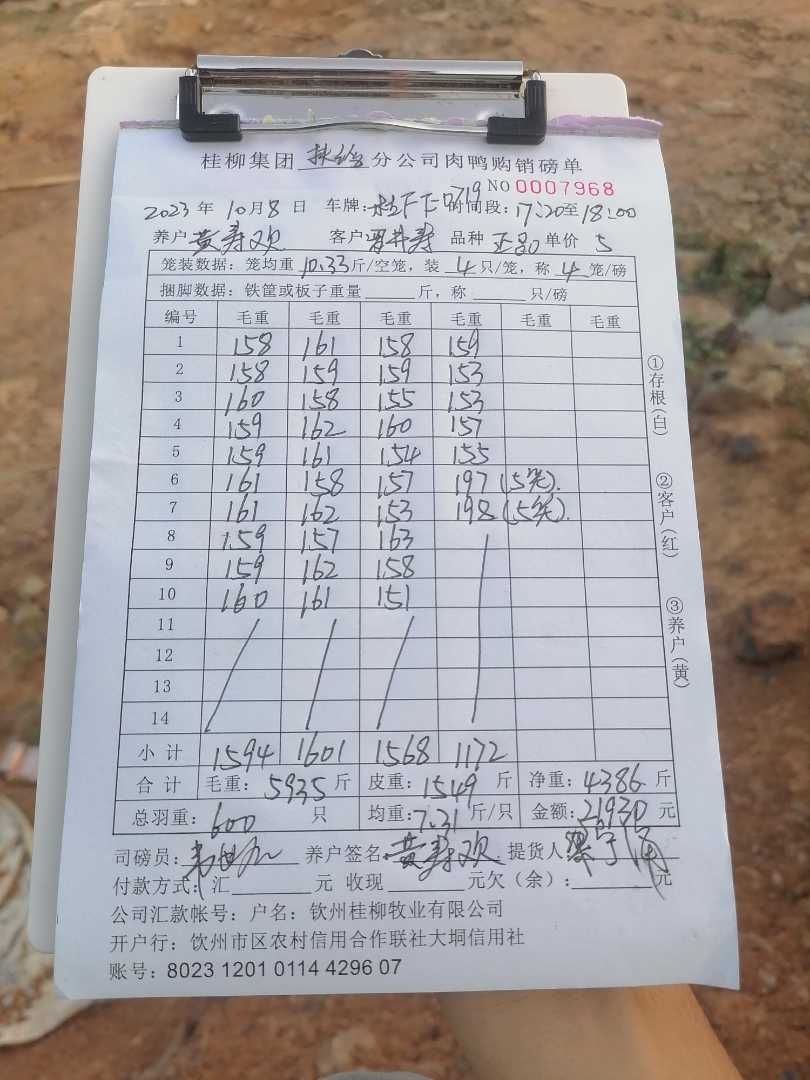 桂柳集团 扶绥 分公司肉鸭购销磅单
NO 0007968
2023 年 10 月 8 日 车牌: 时间段: 17:20 至 18:00
养户 黄寿欢 客户 品种 正品 单价 5
笼装数据: 笼均重 10.33 斤/空笼, 装 4 只/笼, 称 4 笼/磅
捆脚数据: 铁筐或板子重量 斤, 称 只/磅
编号 毛重 毛重 毛重 毛重 毛重 毛重
1 158 161 158 159
2 158 159 159 153
3 160 158 155 153
4 159 162 160 157
5 159 161 154 155
6 161 158 157 197 (5笼).
7 161 162 153 198 (5笼).
8 159 157 163
9 159 162 158
10 160 161 151
11
12
13
14
小计 1594 1601 1568 1172
合计 毛重: 5935 斤 皮重: 1549 斤 净重: 4386 斤
总羽重: 600 只 均重: 7.31 斤/只 金额: 21930 元
司磅员: 养户签名 黄寿欢 提货人
付款方式: 汇 元 收现 元欠(余): 元
公司汇款帐号: 户名: 钦州桂柳牧业有限公司
开户行: 饮州市区农村信用合作联社大垌信用社
账号: 8023 1201 0114 4296 07
①存根(白)
②客户(红)
③养户(黄)